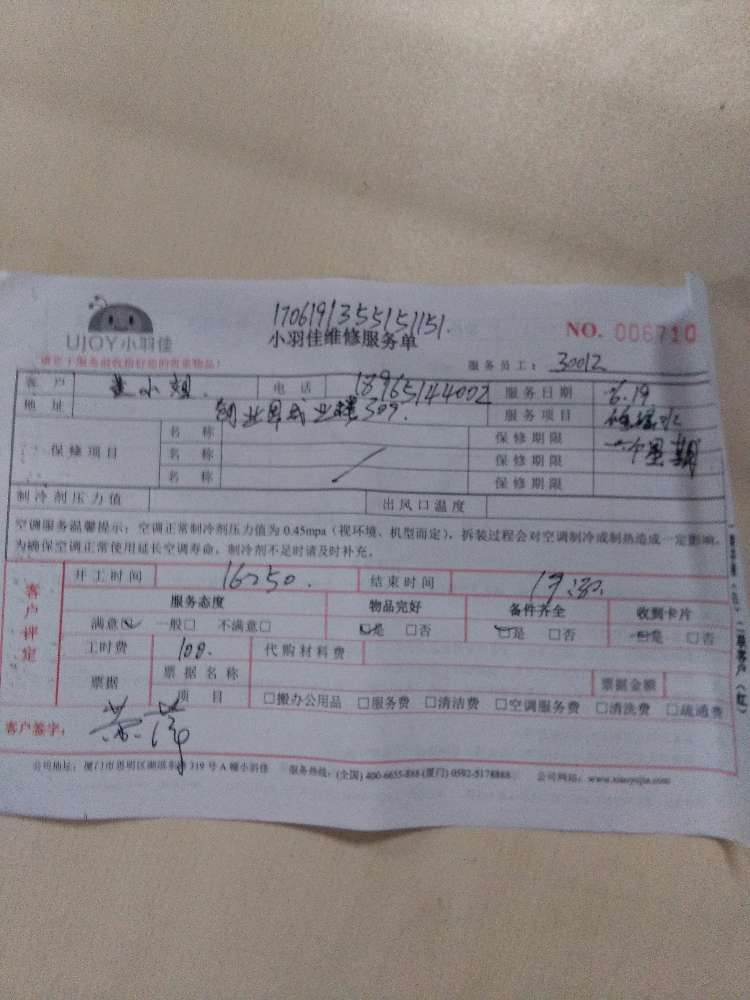 170619135515​1151.
UJOY小羽佳
小羽佳维修服务单
NO. 006710
请您于服务前收拾好您的贵重物品！
服务员工：30012
客户 小姐. 电话 18965144002 服务日期 6.19
地址 创业园成业楼309. 服务项目
保修项目 名称 保修期限 一个星期
名称 保修期限
名称 保修期限
制冷剂压力值 出风口温度
空调服务温馨提示：空调正常制冷剂压力值为0.45mpa（视环境、机型而定），拆装过程会对空调制冷或制热造成一定影响，
为确保空调正常使用延长空调寿命，制冷剂不足时请及时补充。
客户评定
开工时间 16:50. 结束时间
服务态度 物品完好 备件齐全 收到卡片
满意☑ 一般□ 不满意□ ☑是 □否 ☑是 □否 ☑是 □否
工时费 100. 代购材料费
票据 票据名称 票据金额
项目 □搬办公用品 □服务费 □清洁费 □空调服务费 □清洗费 □疏通费
客户签字：
公司地址：厦门市思明区 319号A幢小羽佳 服务热线：(全国) 400-6655-888 (厦门) 0592-5178868 公司网站：www.xiaoyujia.com